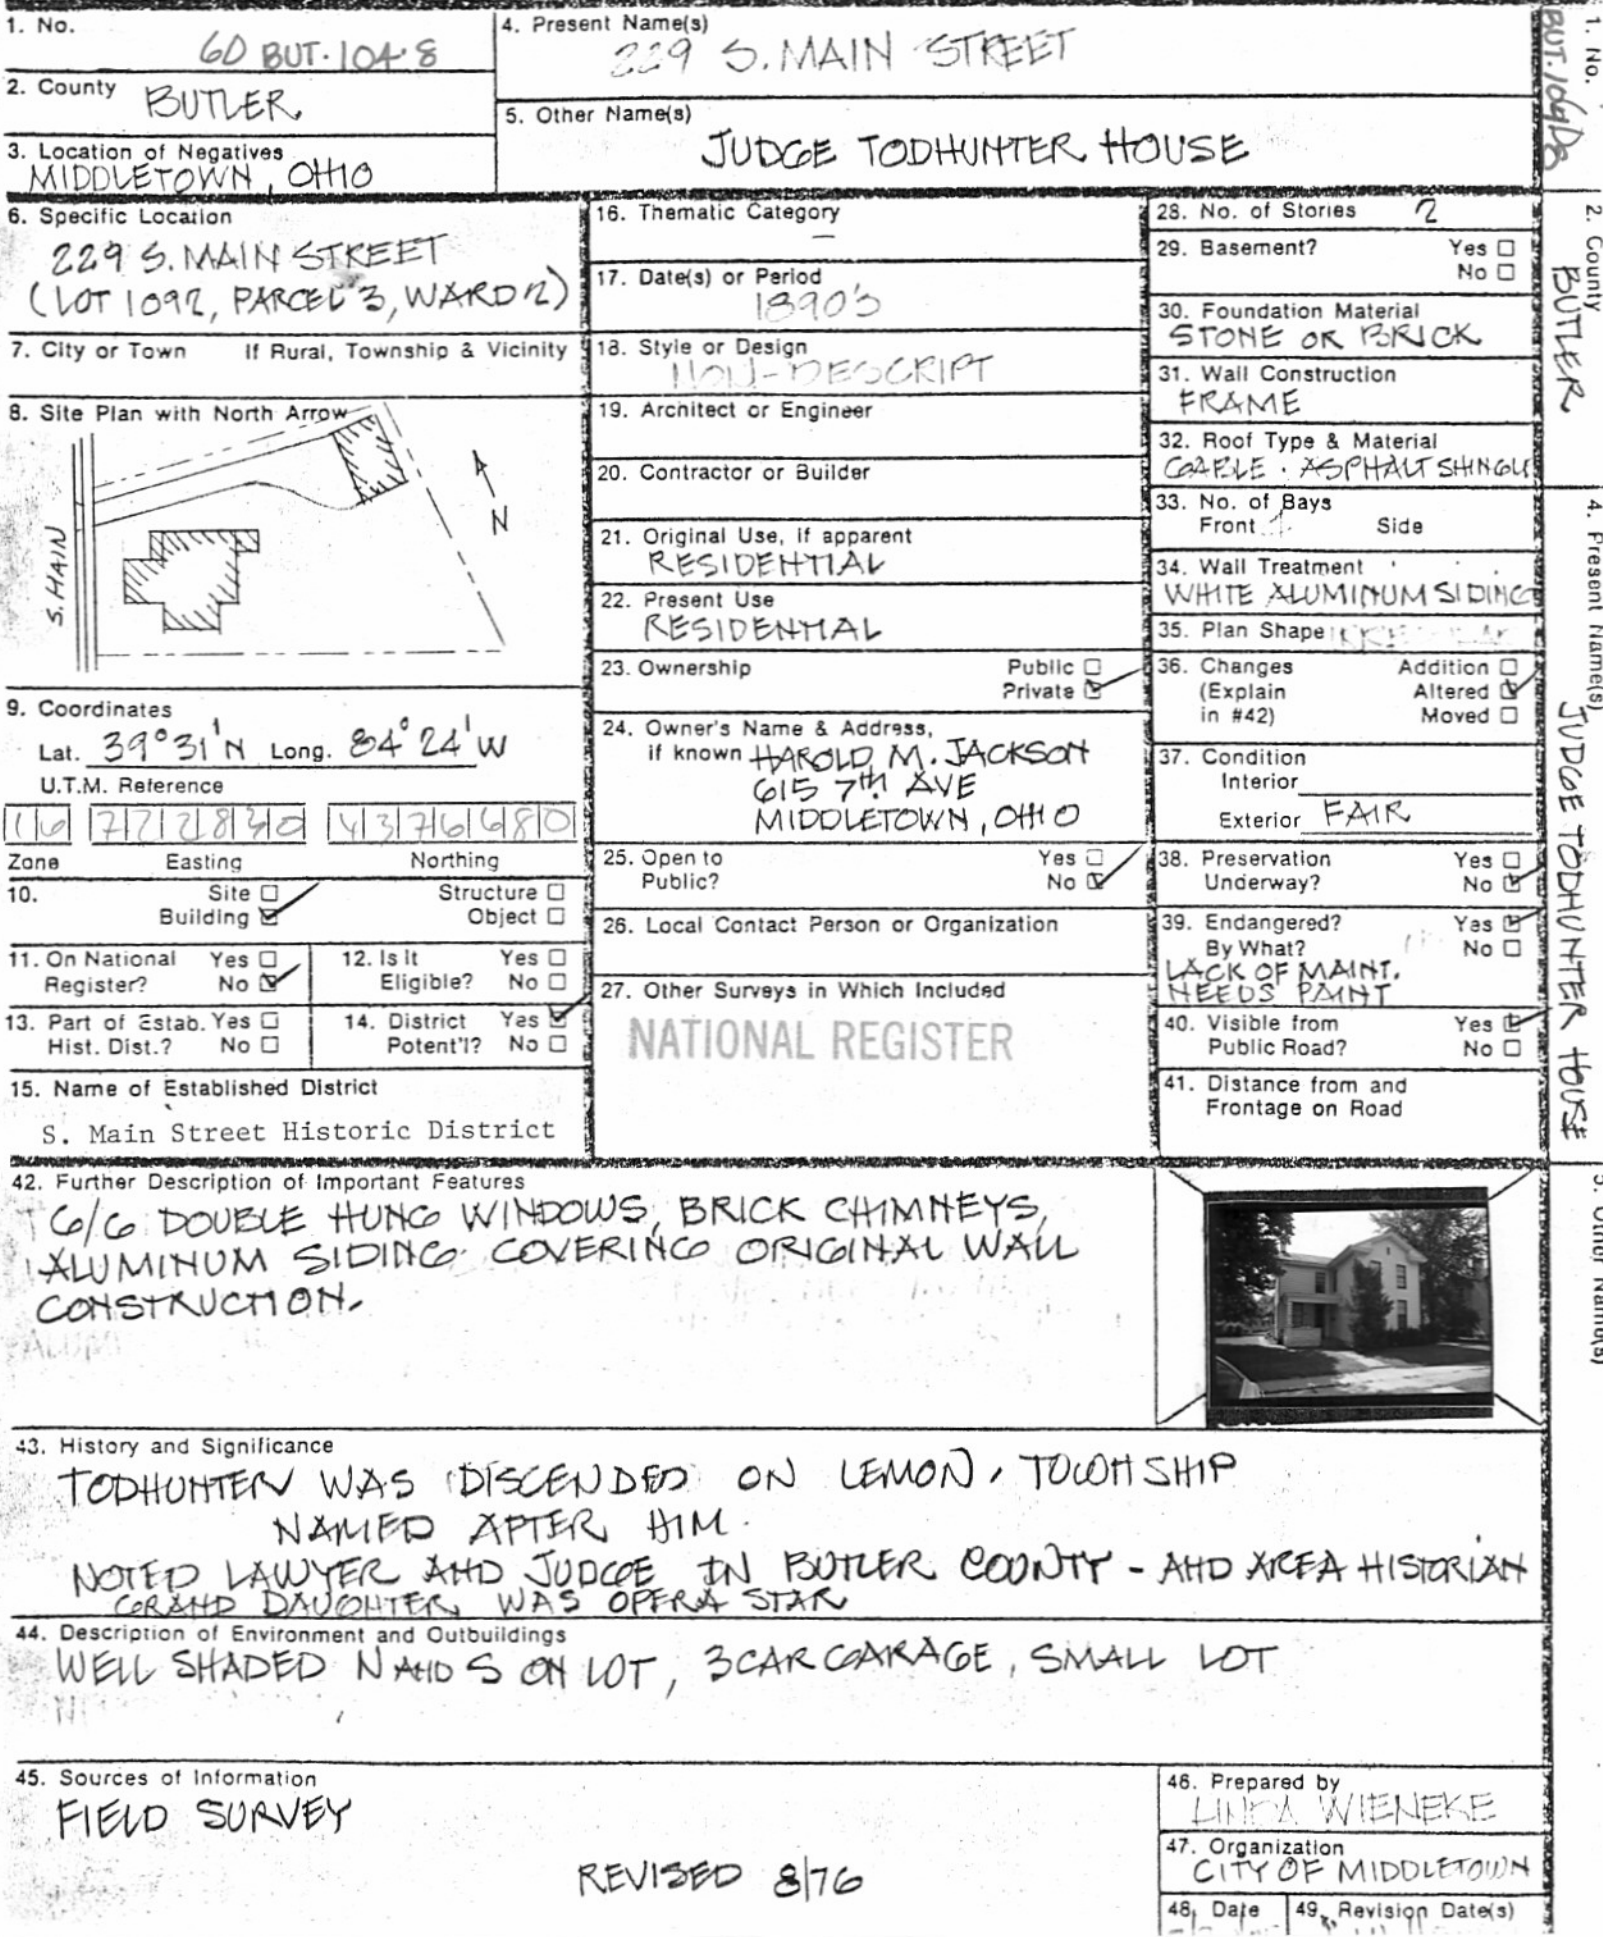 1. No.
6D BUT·104·8
4. Present Name(s)
229 S. MAIN STREET
2. County
BUTLER
5. Other Name(s)
JUDGE TODHUNTER HOUSE
3. Location of Negatives
MIDDLETOWN, OHIO
6. Specific Location
229 S. MAIN STREET
(LOT 1092, PARCEL 3, WARD 2)
7. City or Town If Rural, Township & Vicinity
8. Site Plan with North Arrow
S. MAIN
N
9. Coordinates
Lat. 39° 31' N Long. 84° 24' W
U.T.M. Reference
16 722830 4376680
Zone Easting Northing
10. Site Structure
Building Object
11. On National Register? Yes No
12. Is It Eligible? Yes No
13. Part of Estab. Hist. Dist.? Yes No
14. District Potent'l? Yes No
15. Name of Established District
S. Main Street Historic District
16. Thematic Category
–
17. Date(s) or Period
1890's
18. Style or Design
NON-DESCRIPT
19. Architect or Engineer
20. Contractor or Builder
21. Original Use, if apparent
RESIDENTIAL
22. Present Use
RESIDENTIAL
23. Ownership Public
Private
24. Owner's Name & Address,
if known HAROLD M. JACKSON
615 7TH AVE
MIDDLETOWN, OHIO
25. Open to Yes
Public? No
26. Local Contact Person or Organization
27. Other Surveys in Which Included
NATIONAL REGISTER
28. No. of Stories 2
29. Basement? Yes
No
30. Foundation Material
STONE OR BRICK
31. Wall Construction
FRAME
32. Roof Type & Material
GABLE · ASPHALT SHINGLE
33. No. of Bays
Front Side
34. Wall Treatment
WHITE ALUMINUM SIDING
35. Plan Shape
36. Changes Addition
(Explain Altered
in #42) Moved
37. Condition
Interior
Exterior FAIR
38. Preservation Yes
Underway? No
39. Endangered? Yes
By What? No
LACK OF MAINT.
NEEDS PAINT
40. Visible from Yes
Public Road? No
41. Distance from and
Frontage on Road
42. Further Description of Important Features
6/6 DOUBLE HUNG WINDOWS, BRICK CHIMNEYS,
ALUMINUM SIDING COVERING ORIGINAL WALL
CONSTRUCTION.
43. History and Significance
TODHUNTER WAS DISCENDED ON LEMON, TOWNSHIP
NAMED AFTER HIM.
NOTED LAWYER AND JUDGE IN BUTLER COUNTY - AND AREA HISTORIAN
GRAND DAUGHTER WAS OPERA STAR
44. Description of Environment and Outbuildings
WELL SHADED N AND S ON LOT, 3 CAR GARAGE, SMALL LOT
45. Sources of Information
FIELD SURVEY
REVISED 8/76
46. Prepared by
LINDA WIENEKE
47. Organization
CITY OF MIDDLETOWN
48. Date
49. Revision Date(s)
1. No.
2. County
BUTLER
4. Present Name(s)
JUDGE TODHUNTER HOUSE
5. Other Name(s)